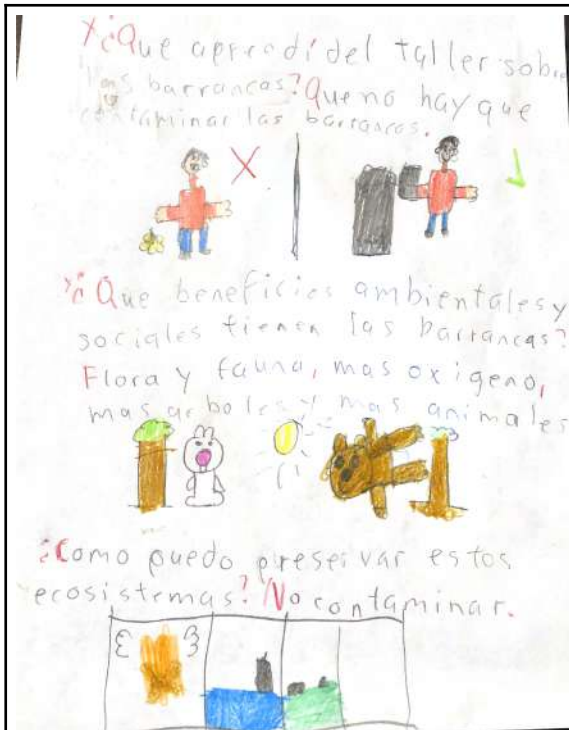 ¿Que aprendí del taller sobre
las barrancas? Que no hay que
contaminar las barrancas.
¿Que beneficios ambientales y
sociales tienen las barrancas?
Flora y fauna, mas oxigeno,
mas arboles y mas animales
¿Como puedo preservar estos
ecosistemas? No contaminar.